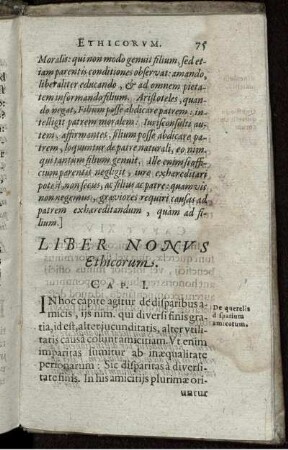 ETHICORVM. 75
Moralis: qui non modo genuit filium, sed et-
iam parentis conditiones observat: amando,
liberaliter educando, & ad omnem pieta-
tem informando filium. Aristoteles, quan-
do negat, Filium posse abdicare patrem: in-
telligit patrem moralem: Iurisconsulti au-
tem, affirmantes, filium posse abdicare pa-
trem, loquuntur de patre naturali, eo nim.
qui tantum filium genuit. Ille enim si offi-
cium parentis negligit, iure exhæreditari
potest, non secus, ac filius ac patre: quamvis
non negemus, graviores requiri causas ad
patrem exhæreditandum, quàm ad fi-
lium.]
LIBER NONVS
Ethicorum.
CAP. I.
IN hoc capite agitur de disparibus a-
micis, ijs nim. qui diversi finis gra-
tia, id est, alter jucunditatis, alter vtili-
tatis causa colunt amicitiam. Vt enim
imparitas sumitur ab inæqualitate
personarum: Sic disparitas à diversi-
tate finis. In his amicitijs plurimæ ori-
untur
De querelis
disparium
amicorum.